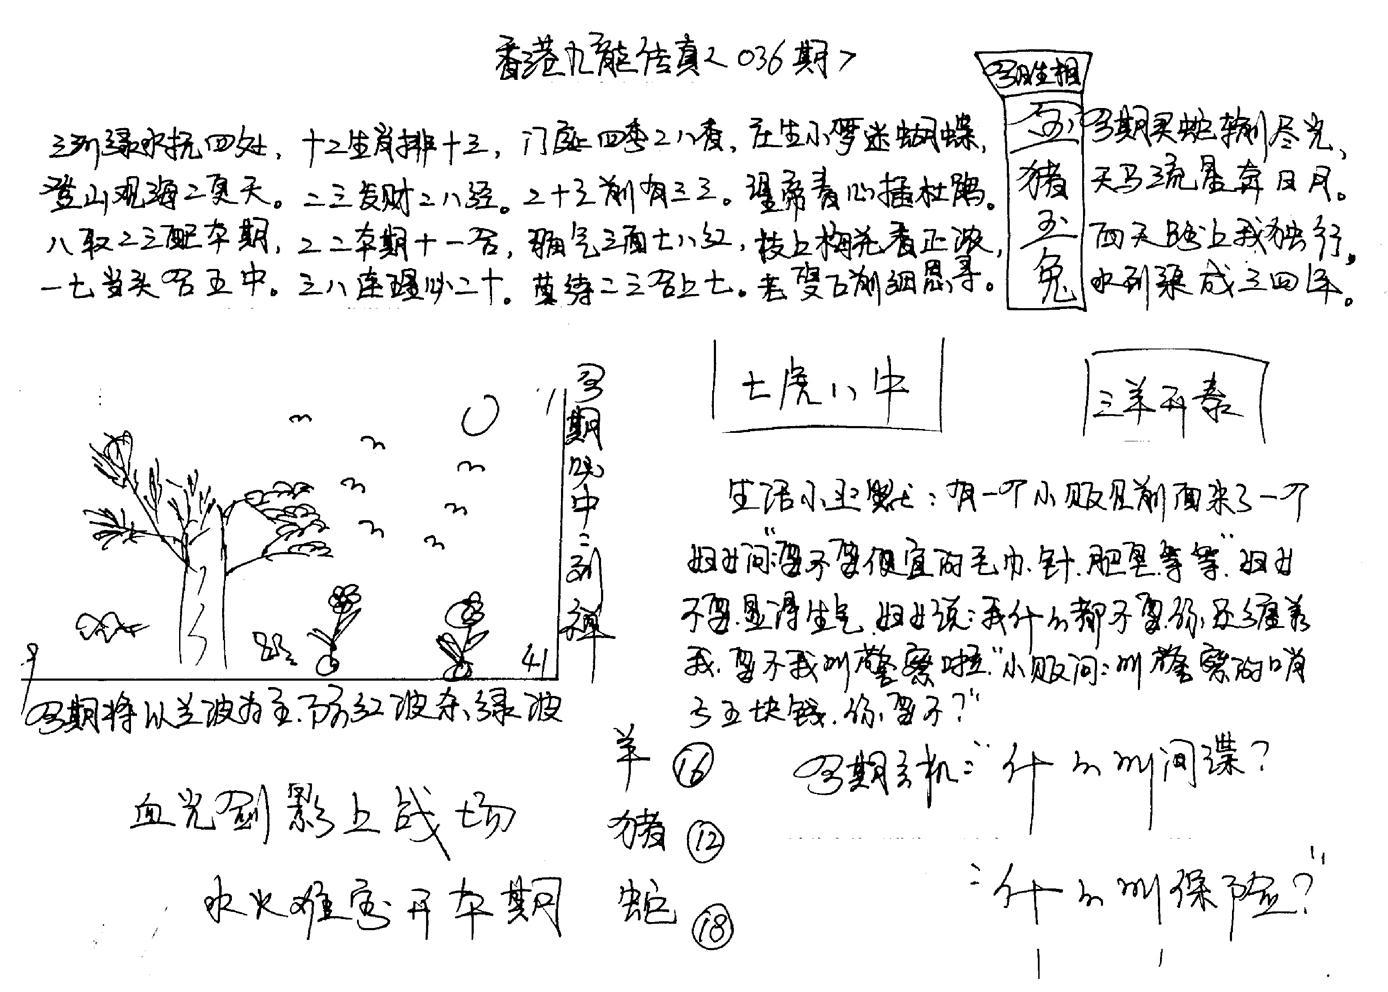 香港九龙传真<036期>
另期生相
三洲绿水抗四处，十二生肖排十三，门庭四季之八香，庄生小梦迷蝴蝶，
登山观海二夏天。二三发财二八经。二十三前有三三。望帝春心插杜鹃。
八取二三配本期，二二本期十一合，瑞气三面七八红，枝上梅花看正浓，
一七当头合五中。三八连理必二十。莫待二三合上七。老叟百前细思寻。
玉
猪
玉
兔
另期买蛇输尽光，
天马流星奔日月。
西天路上我独行，
水到渠成三四泽。
七虎八中
三羊开泰
另期必中:列禅
9
41
另期将以兰波为主.防红波杂绿波
生活小: 有一个小贩见前面来了一个
妇女问:"要不要便宜的毛巾.针.肥皂.等等"妇女
不要.显得生气.妇女说:我什么都不要你.还缠着
我.要不我叫警察啦."小贩问:叫警察的哨
子五块钱.你.要不?"
另期玄机:"什么叫间谍?
"什么叫保险?"
血光剑影上战场
水火难容开本期
羊 16
猪 12
蛇 18